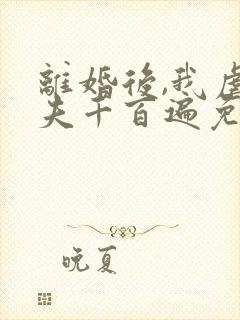 離婚後,我虐
夫千百遍免
晚夏